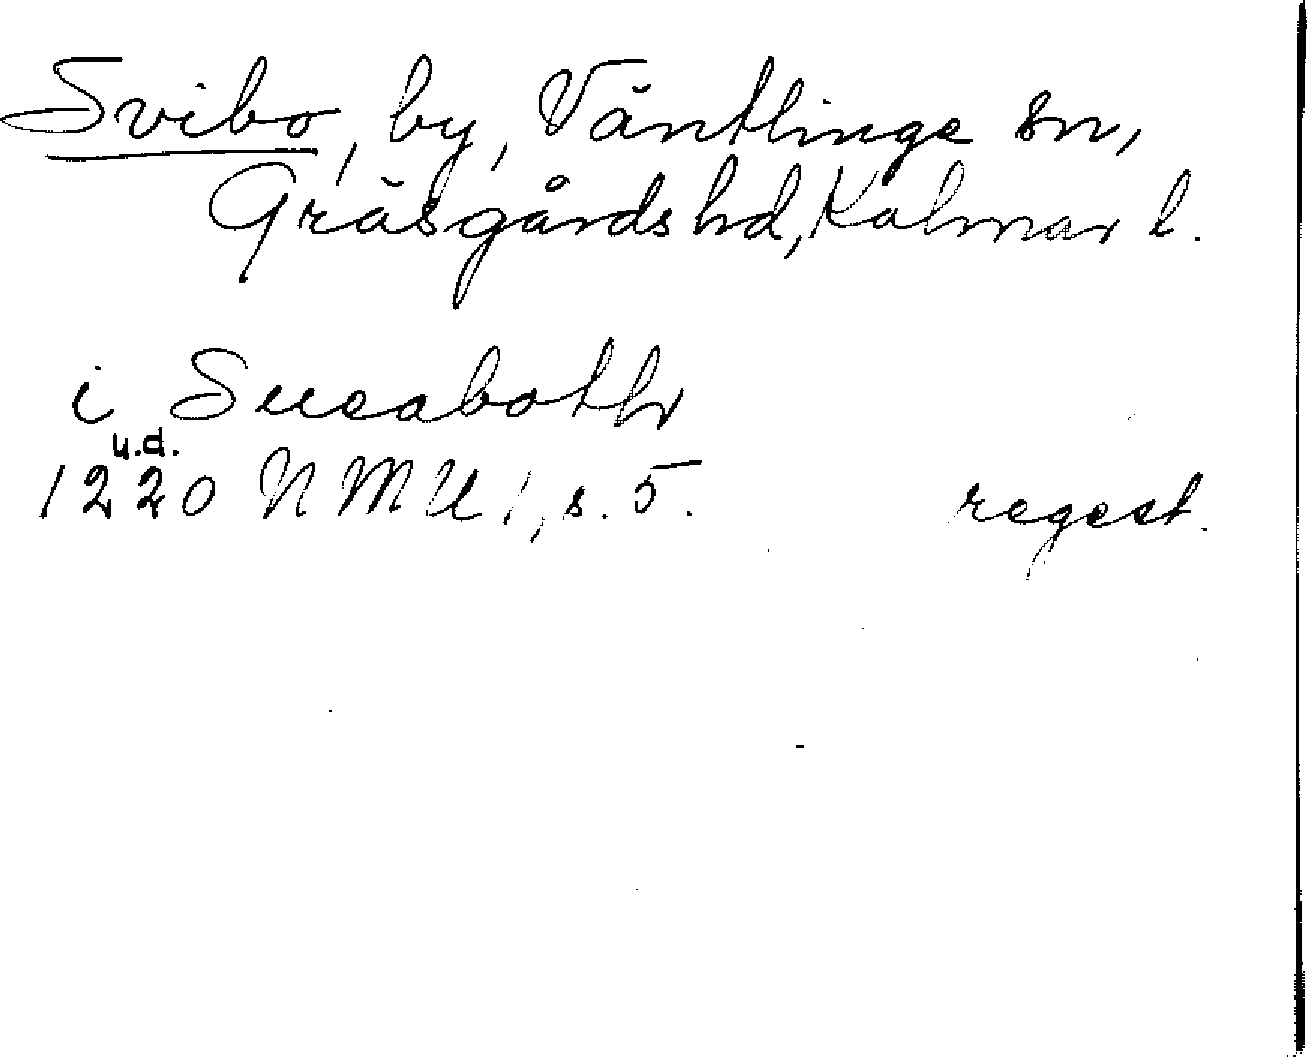 Svibo, by, Väntlinge sn,
Gräsgårds hd, Kalmar l.
i Sueaboth
u.d.
1220 NMU 1, s. 5. regest.